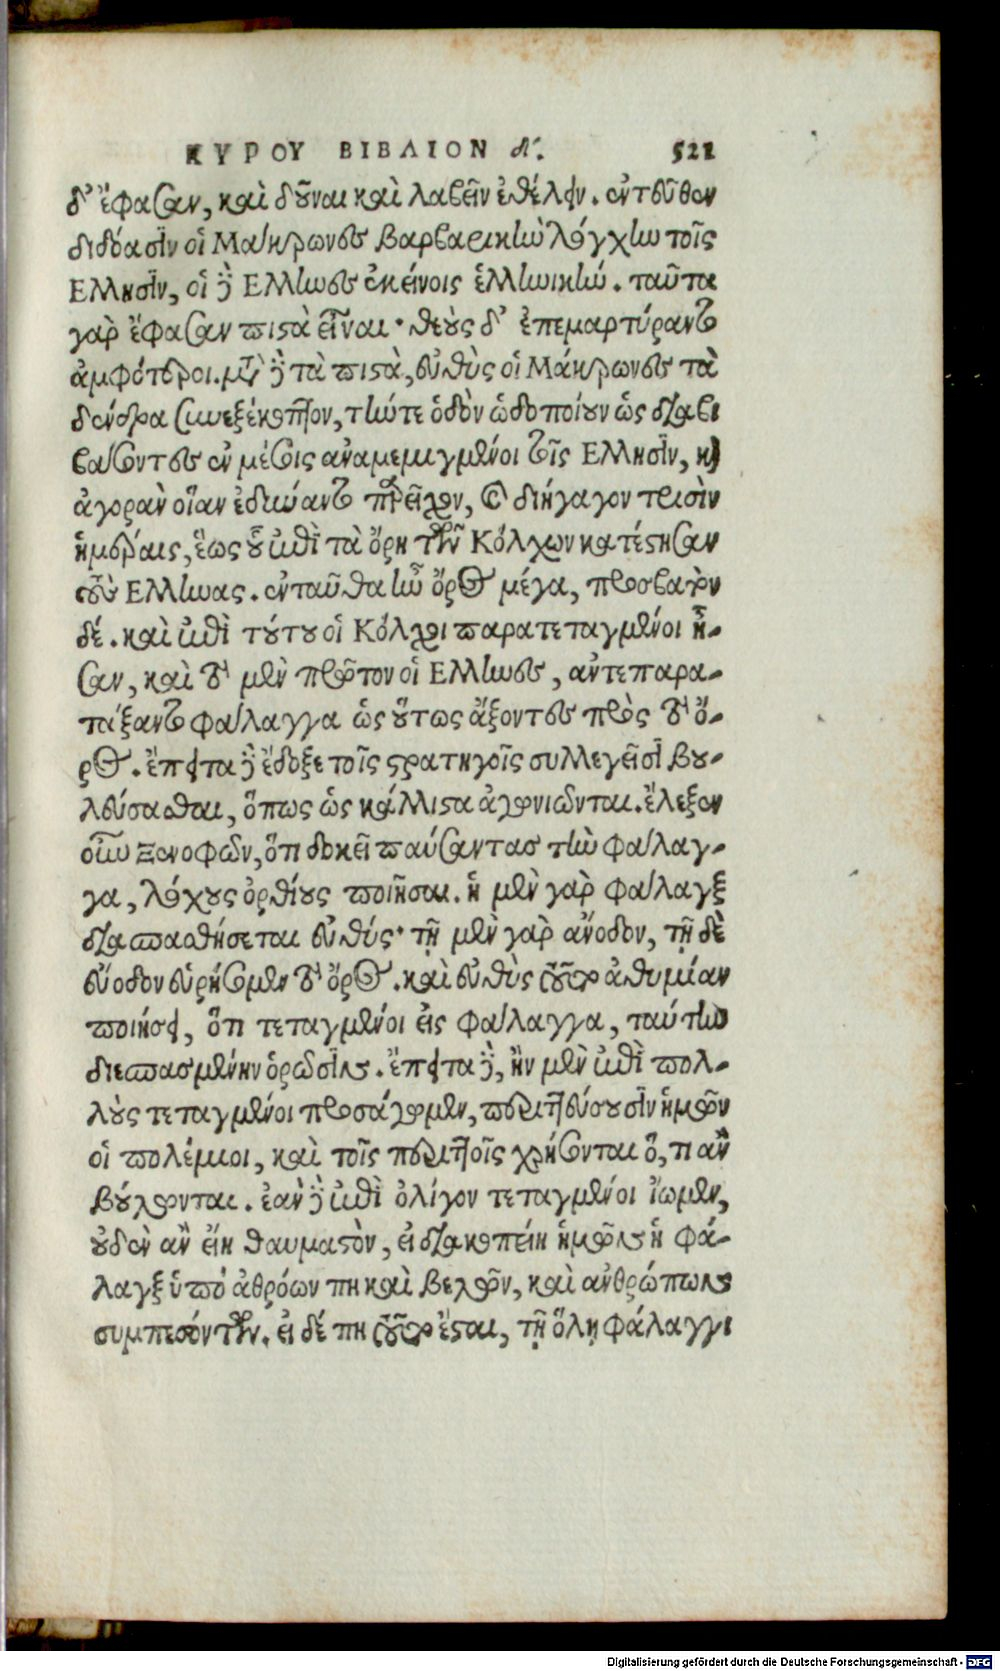 ΚΥΡΟΥ ΒΙΒΛΙΟΝ δ'. 521
δ' ἔφασαν, καὶ δοῦναι καὶ λαβεῖν ἐθέλειν. ἐντεῦθεν
διδόασιν οἱ Μάκρωνες βαρβαρικὴν λόγχην τοῖς
Ελλησιν, οἱ δὲ Ελληνες ἐκείνοις ἑλληνικήν. ταῦτα
γὰρ ἔφασαν πιστὰ εἶναι· θεοὺς δ' ἐπεμαρτύραντο
ἀμφότεροι. μετὰ δὲ τὰ πιστὰ, εὐθὺς οἱ Μάκρωνες τὰ
δένδρα συνεξέκοπτον, τήν τε ὁδὸν ὡδοποίουν ὡς διαβι
βάσοντες ἐν μέσοις ἀναμεμιγμένοι τοῖς Ελλησιν, καὶ
ἀγορὰν οἵαν ἐδύναντο παρεῖχον, καὶ διήγαγον τρισὶν
ἡμέραις, ἕως οὗ ἐπὶ τὰ ὄρη τῶν Κόλχων κατέστησαν
τοὺς Ελληνας. ἐνταῦθα ἦν ὄρος μέγα, προσβατὸν
δέ. καὶ ἐπὶ τούτου οἱ Κόλχοι παρατεταγμένοι ἦ-
σαν, καὶ τὸ μὲν πρῶτον οἱ Ελληνες, ἀντεπαρα-
τάξαντο φάλαγγα ὡς οὕτως ἄξοντες πρὸς τὸ ὄ-
ρος. ἔπειτα δὲ ἔδοξε τοῖς στρατηγοῖς συλλεγεῖσι βου-
λεύσασθαι, ὅπως ὡς κάλλιστα ἀγωνιῶνται. ἔλεξεν
οὖν Ξενοφῶν, ὅτι δοκεῖ παύσαντας τὴν φάλαγ-
γα, λόχους ὀρθίους ποιῆσαι. ἡ μὲν γὰρ φάλαγξ
διασπασθήσεται εὐθύς· τῇ μὲν γὰρ ἄνοδον, τῇ δὲ
εὔοδον εὑρήσομεν τὸ ὄρος. καὶ εὐθὺς τοῦτο ἀθυμίαν
ποιήσει, ὅτι τεταγμένοι εἰς φάλαγγα, ταύτην
διεσπασμένην ὁρῶσιν. ἔπειτα δὲ, ἢν μὲν ἐπὶ πολ-
λοὺς τεταγμένοι προσάγωμεν, περιττεύσουσιν ἡμῶν
οἱ πολέμιοι, καὶ τοῖς περιττοῖς χρήσονται ὅ, τι ἂν
βούλωνται. ἐὰν δὲ ἐπὶ ὀλίγον τεταγμένοι ἴωμεν,
οὐδὲν ἂν εἴη θαυμαστὸν, εἰ διακοπείη ἡμῶν ἡ φά-
λαγξ ὑπὸ ἀθρόων πη καὶ βελῶν, καὶ ἀνθρώπων
συμπεσόντων. εἰ δέ πη τοῦτο ἔσται, τῇ ὅλῃ φάλαγγι
Digitalisierung gefördert durch die Deutsche Forschungsgemeinschaft - DFG